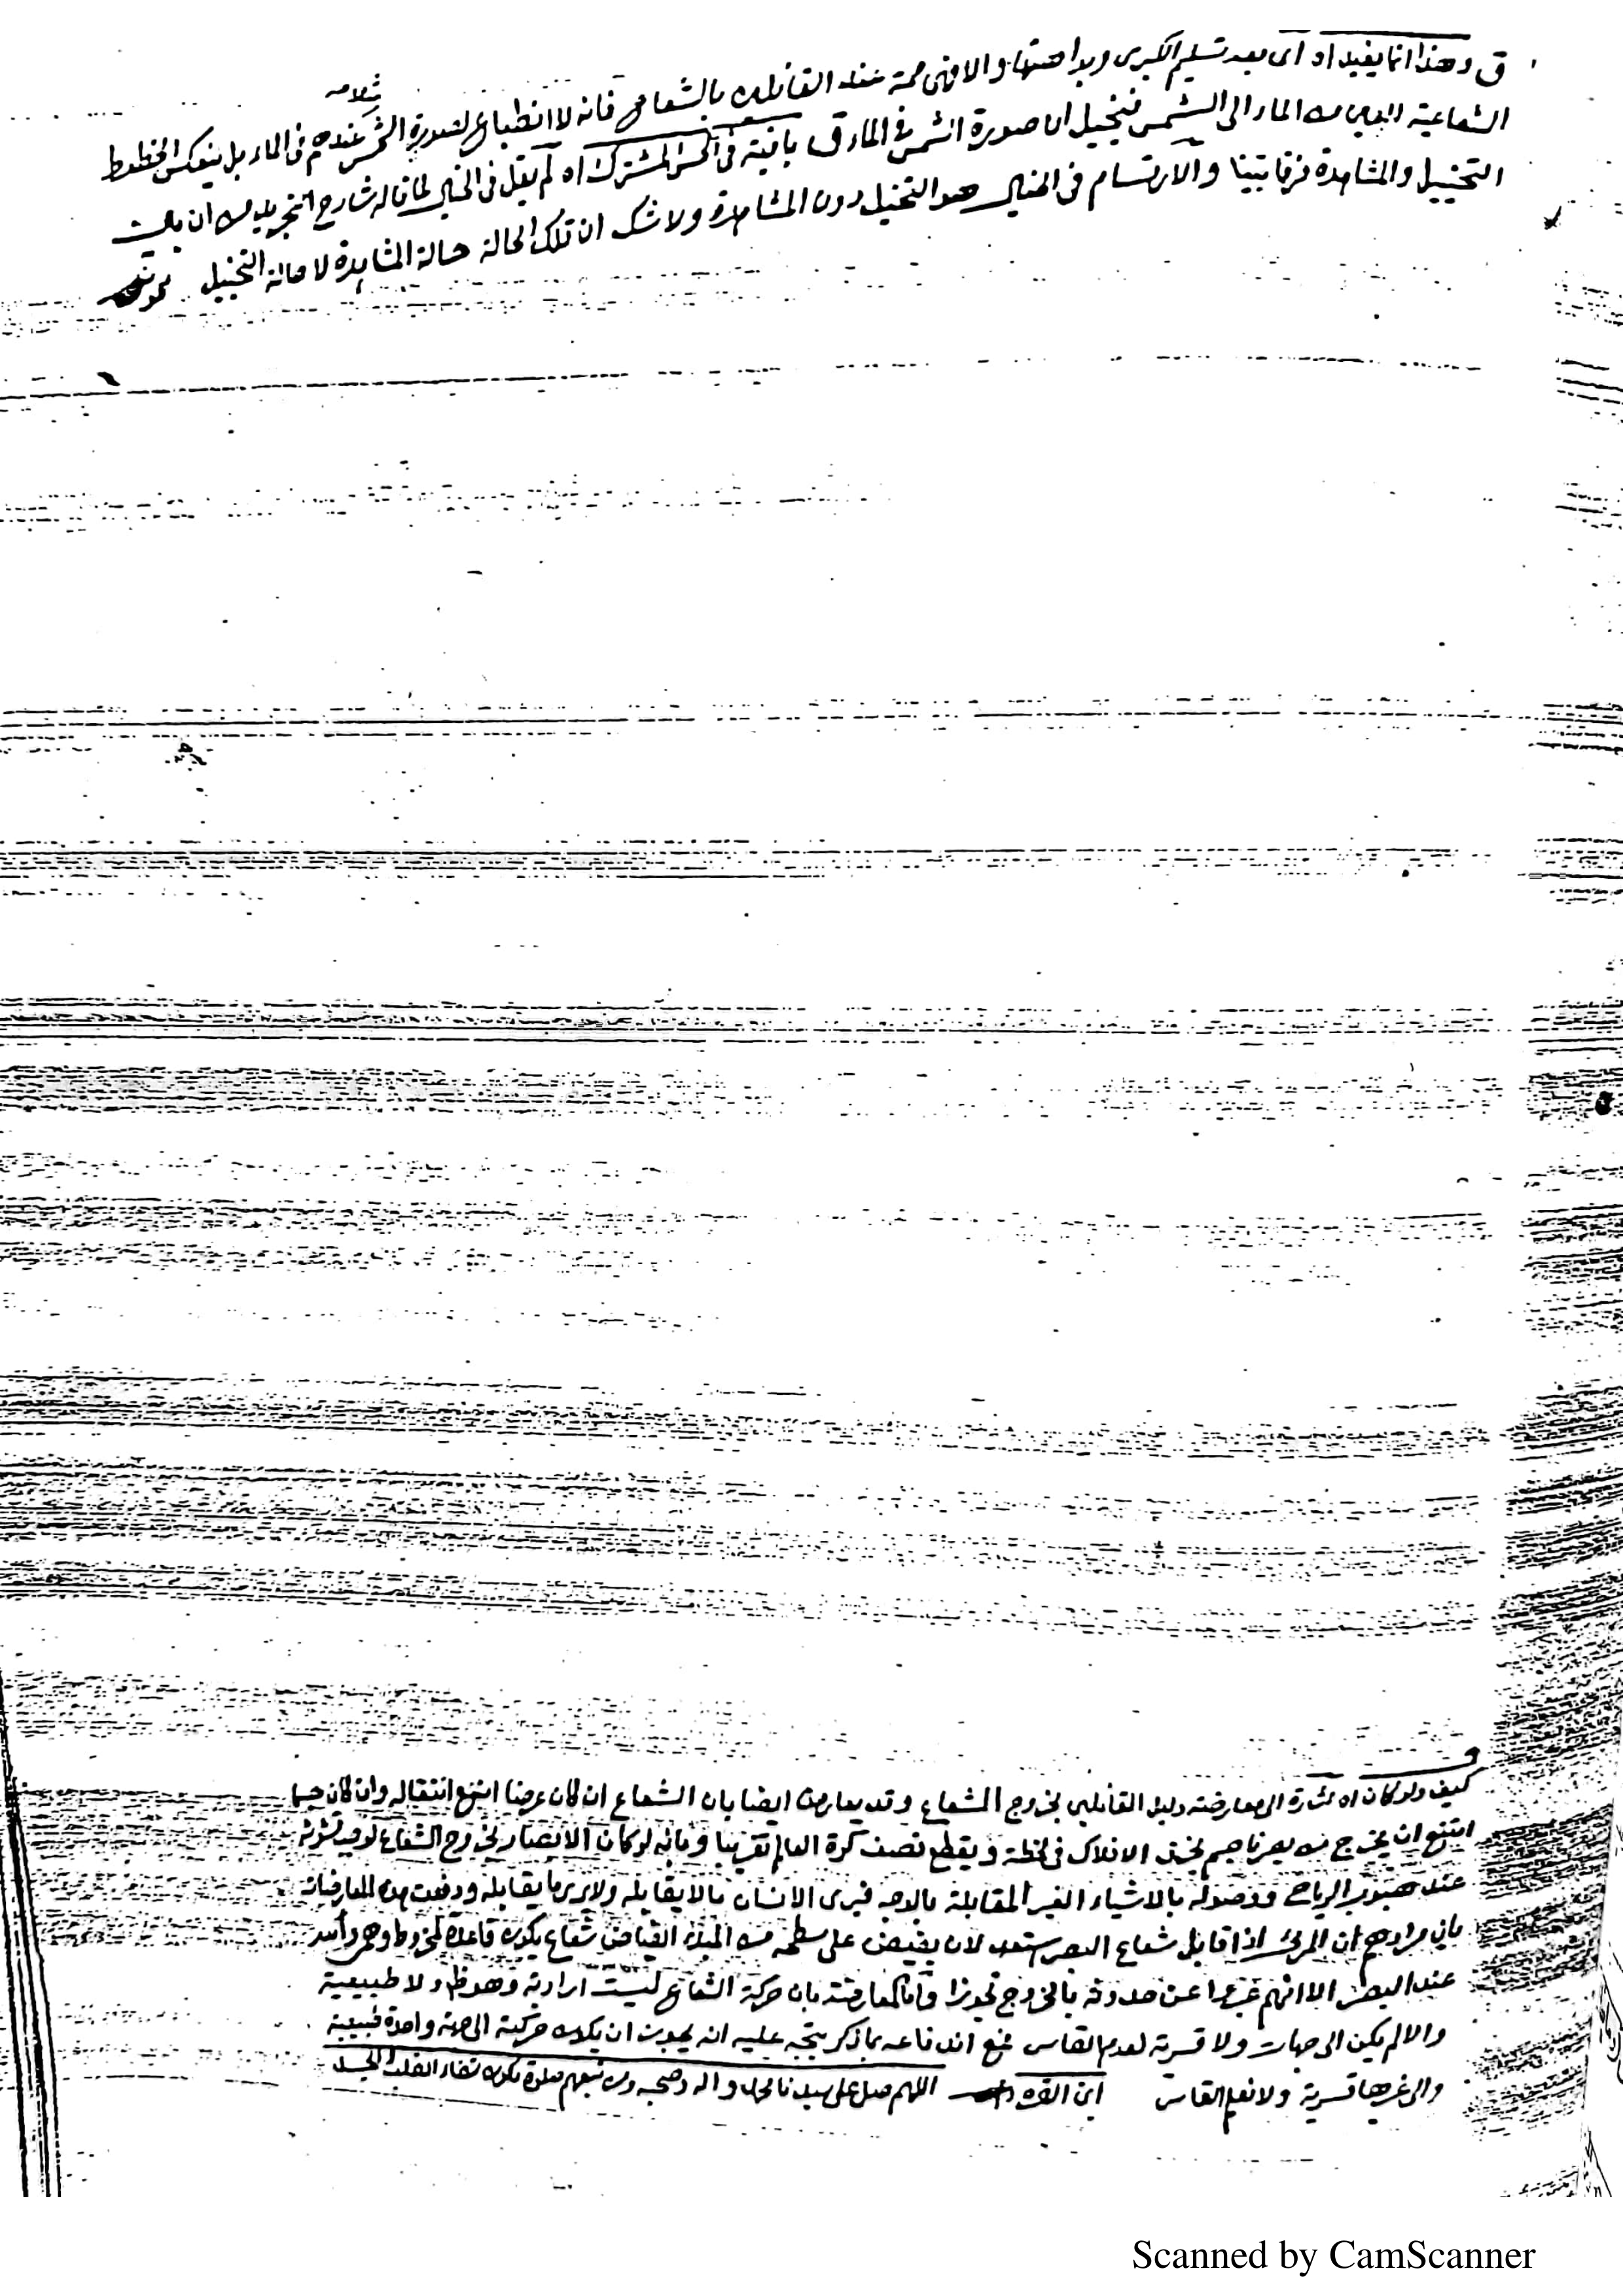 ق وهذا انما يفيد اه اى بعد تسليم الكبرى وبداهتها والا فهى ممة عند القائلين بالشعاع فانه لا انطباع لصورة الشمس عندهم فى الماء بل ينعكس الخطوط
ثلامه
الشعاعية من الماء الى الشمس فيتخيل ان صورة الشمس فى الماء ق باقية فى الحس المشترك اه لم يقل فى الخيال لما قاله شارح التجريد من ان بين
التخييل والمشاهدة فرقا بينا والارتسام فى الخيال هو التخيل دون المشاهدة ولا شك ان تلك الحالة حالة المشاهدة لا حالة التخييل
كيف ولو كان اه اشارة الى معارضة دليل القائلين بخروج الشعاع وقد يعارض ايضا بان الشعاع ان كان عرضا امتنع انتقاله وان كان جسما
امتنع ان يخرج من بصرنا جسم يخرق الافلاك فى لحظة ويقطع نصف كرة العالم تقريبا وبانه لو كان الابصار بخروج الشعاع لوجب تشوشه
عند هبوب الرياح ووصوله بالاشياء الغير المقابلة بالوجه فيرى الانسان ما لا يقابله ولا يرى ما يقابله ودفعت هذه المعارضات
بان مرادهم ان المرئى اذا قابل شعاع البصر استعد لان يفيض على سطحه من المبدء الفياض شعاع يكون قاعدة لمخروط وهمى رأسه
عند البصر الا انهم عبروا عن حدوثه بالخروج تجوزا واما المعارضة بان حركة الشعاع ليست ارادية وهو ظ ولا طبيعية
والا لم يكن الى جهات ولا قسرية لعدم القاسر فمع اندفاعه بما ذكر يتجه عليه انه يجوز ان يكون حركته الى جهة واحدة طبيعية
والى غيرها قسرية ولا نعلم القاسر ابن القره داغى اللهم صل على سيدنا محمد واله وصحبه ومن تبعهم صلوة تكون شفاء القلب والجسد
Scanned by CamScanner